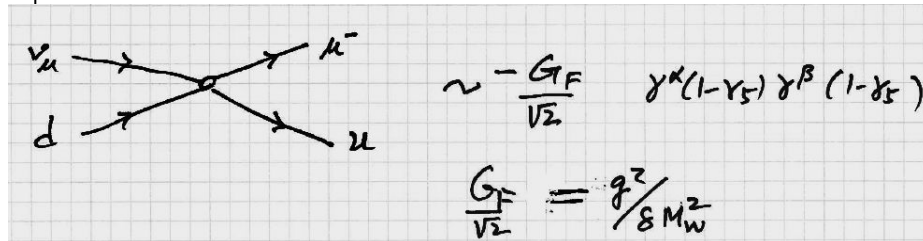 ν_μ μ⁻
d u
~ -G_F/√2 γ^α(1-γ_5) γ^β (1-γ_5)
G_F/√2 = g²/8M_W²